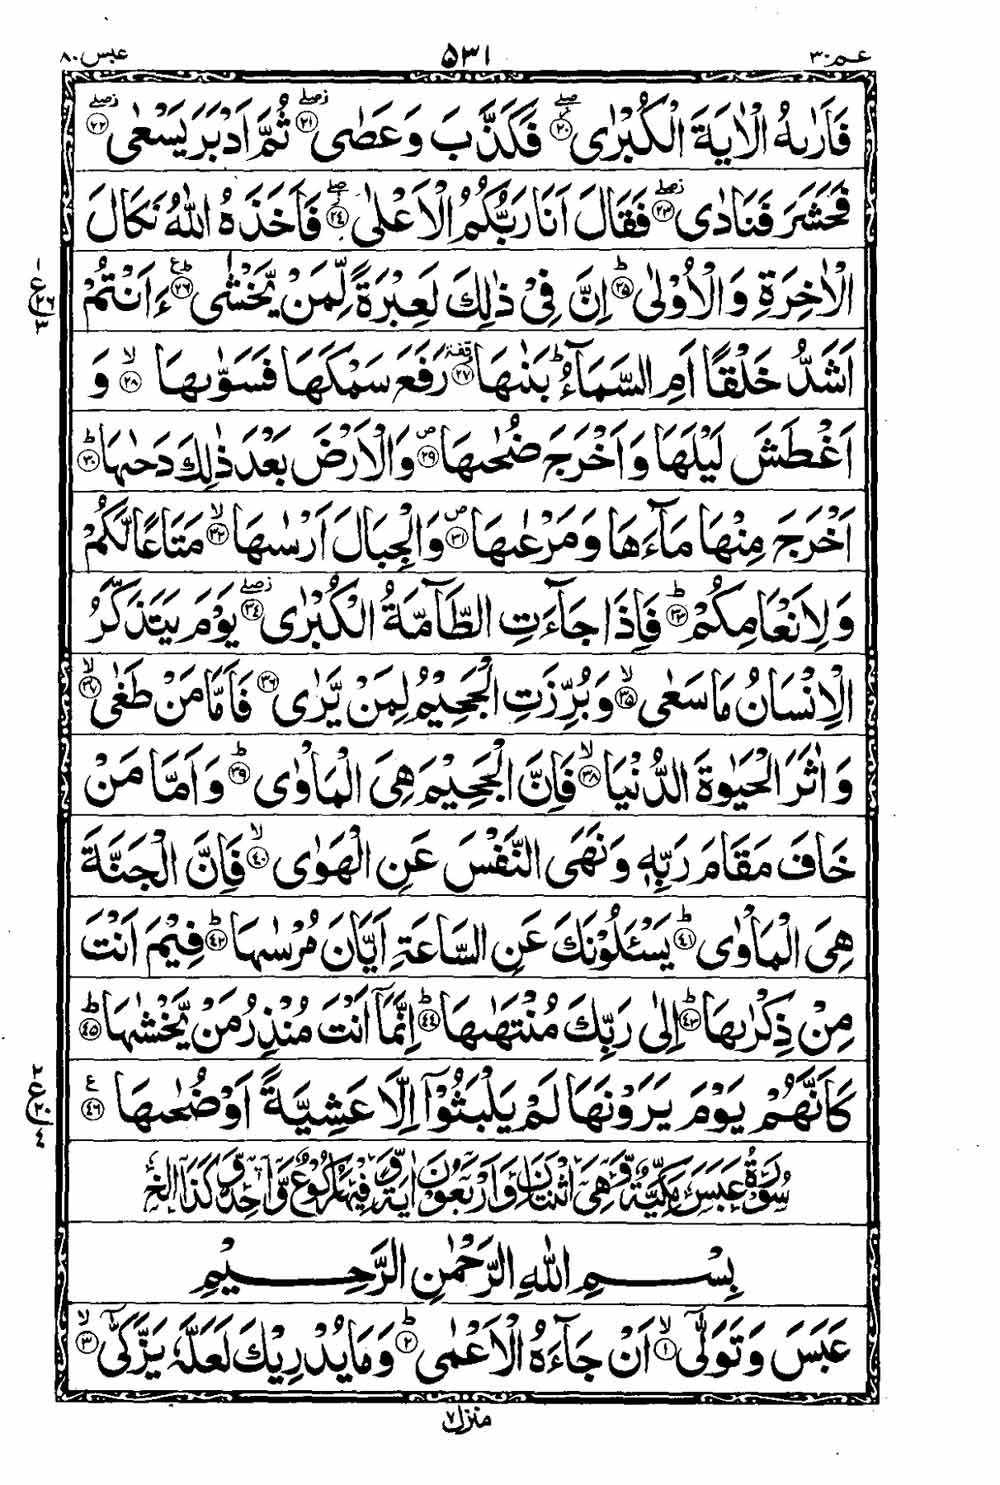 عبس ٨٠ ٥٣١ عـم ٣٠
فَاَرٰىهُ الْاٰيَةَ الْكُبْرٰى ۖ۝٢٠ فَكَذَّبَ وَعَصٰى ۖ۝٢١ ثُمَّ اَدْبَرَ يَسْعٰى ۖ۝٢٢
فَحَشَرَ فَنَادٰى ۖ۝٢٣ فَقَالَ اَنَا رَبُّكُمُ الْاَعْلٰى ۖ۝٢٤ فَاَخَذَهُ اللّٰهُ نَكَالَ
الْاٰخِرَةِ وَالْاُوْلٰى ؕ۝٢٥ اِنَّ فِىْ ذٰلِكَ لَعِبْرَةً لِّمَنْ يَّخْشٰى ؕ۝٢٦ ءَاَنْتُمْ
اَشَدُّ خَلْقًا اَمِ السَّمَآءُ ؕ بَنٰىهَا ۝٢٧ رَفَعَ سَمْكَهَا فَسَوّٰىهَا ۙ۝٢٨ وَ
اَغْطَشَ لَيْلَهَا وَاَخْرَجَ ضُحٰىهَا ۝٢٩ وَالْاَرْضَ بَعْدَ ذٰلِكَ دَحٰىهَا ؕ۝٣٠
اَخْرَجَ مِنْهَا مَآءَهَا وَمَرْعٰىهَا ۝٣١ وَالْجِبَالَ اَرْسٰىهَا ۙ۝٣٢ مَتَاعًا لَّكُمْ
وَلِاَنْعَامِكُمْ ؕ۝٣٣ فَاِذَا جَآءَتِ الطَّآمَّةُ الْكُبْرٰى ۖ۝٣٤ يَوْمَ يَتَذَكَّرُ
الْاِنْسَانُ مَا سَعٰى ۙ۝٣٥ وَبُرِّزَتِ الْجَحِيْمُ لِمَنْ يَّرٰى ۝٣٦ فَاَمَّا مَنْ طَغٰى ۙ۝٣٧
وَاٰثَرَ الْحَيٰوةَ الدُّنْيَا ۙ۝٣٨ فَاِنَّ الْجَحِيْمَ هِىَ الْمَاْوٰى ؕ۝٣٩ وَاَمَّا مَنْ
خَافَ مَقَامَ رَبِّهٖ وَنَهَى النَّفْسَ عَنِ الْهَوٰى ۙ۝٤٠ فَاِنَّ الْجَنَّةَ
هِىَ الْمَاْوٰى ؕ۝٤١ يَسْـَٔلُوْنَكَ عَنِ السَّاعَةِ اَيَّانَ مُرْسٰىهَا ؕ۝٤٢ فِيْمَ اَنْتَ
مِنْ ذِكْرٰىهَا ؕ۝٤٣ اِلٰى رَبِّكَ مُنْتَهٰىهَا ؕ۝٤٤ اِنَّمَآ اَنْتَ مُنْذِرُ مَنْ يَّخْشٰىهَا ؕ۝٤٥
كَاَنَّهُمْ يَوْمَ يَرَوْنَهَا لَمْ يَلْبَثُوْٓا اِلَّا عَشِيَّةً اَوْ ضُحٰىهَا ۝٤٦
سُوْرَةُ عَبَسَ مَكِّيَّةٌ وَّهِىَ اثْنَتَانِ وَاَرْبَعُوْنَ اٰيَةً وَّفِيْهَا رُكُوْعٌ وَّاحِدٌ
بِسْمِ اللّٰهِ الرَّحْمٰنِ الرَّحِيْمِ
عَبَسَ وَتَوَلّٰٓى ۙ۝١ اَنْ جَآءَهُ الْاَعْمٰى ؕ۝٢ وَمَا يُدْرِيْكَ لَعَلَّهٗ يَزَّكّٰٓى ۙ۝٣
منزل ٧